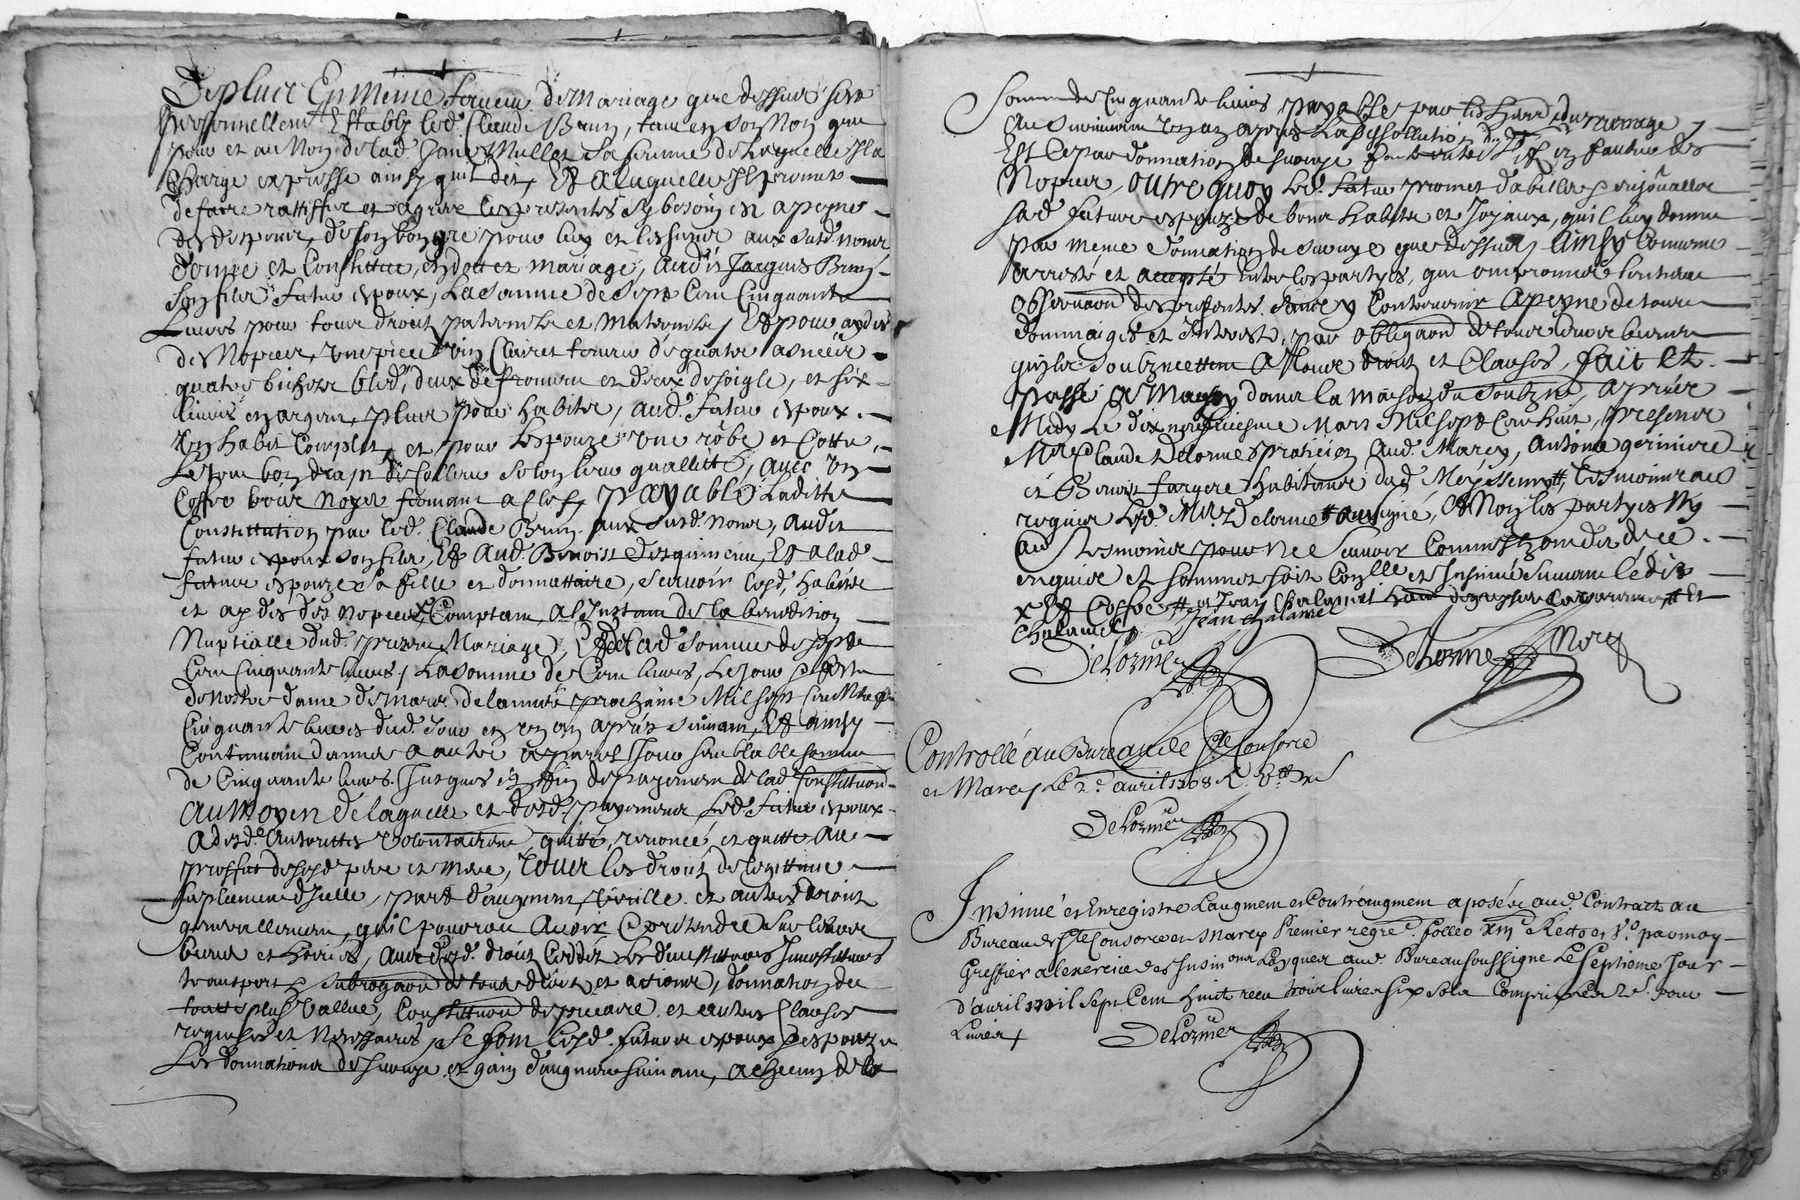 De plus En Meme faveur de Mariage que dessus sest
personnellemt Estably led. Claude Brun, tant en son Nom que
pour et au Nom de lad. Jane Mullet sa femme de laquelle Il a
Charge expresse ainsy quil dit, Et a laquelle Il promet
de faire rattiffier et agreer les presentes sy besoin est a peyne
des despens, de son bon gre pour luy et les siens aux susd. Noms
donne et Constitue, en dott et mariage, audit Jacques Brun
son fils futur espoux, La somme de Sept Cent Cinquante
Livres pour tous droits paternels et Maternels, Et pour aydes
de Nopces, une piece vin Clairet tenant de quatre asnées
quatre bichets bled, deux de froment et deux de soigle, et six
livres en argent, plus pour habits, aud. futur espoux
un habit Complet, et pour Lespouze une robe et Cotte,
Le tout bon drap de Couleur selon leur quallité, avec un
Coffre bois Noyer fermant a Clef, payable Laditte
Constitution par led. Claude Brun aux susd. Noms, audit
futur espoux son fils, Et Aud. Benoist Et a lad
future espouze sa fille et donnattaire, scavoir lesd. habits
et aydes des Nopces Comptant a l'Instant de la benediction
Nuptialle dud. present Mariage, Et de lad. somme de sept
Cent Cinquante livres, La somme de Cent livres, Le jour feste
de nostre dame de Mars de lannée prochaine Mil sept Cent Neuf
Cinquante livres dud. jour en un an apres suivant, Et ainsy
Continuant dannée a autre a pareil Jour semblable somme
de Cinquante livres Jusques en fin de payement de lad. Constitution
Au Moyen de laquelle et desd. payements Led. futur espoux
a desd. Authorittes Volontairement quitté, renoncé, et quitte Au
proffit de sesd. pere et mere, Tous les droits de legittime
suplement d'Icelle, part d'augment, et autres droits
generallement, quil pourroit Avoir Et pretendre sur leurs
biens et hoiries, Avec desd. droits Ceddés Les desvestitures Investitures
transport, subrogation de tous droits et actions, donnation de
toutte plus Vallue, Constitution de precaire et autres Clauses
requises et Necessaires, Se sont lesd. futurs espoux espouze
Les donnations de survye et gain d'augment suivant, a scavoir de la
somme de Cinquante livres payable par les hoirs du premier
Au survivant un an apres La dissollution dud. mariage,
Est Ce par donnation de survye faitte entre Et en faveur des
Nopces, Outre quoy Led. futur promet d'abiller enjoualler
sad. future espouze de bons habits et Joyaux, quil luy donne
par meme donnation de survye que dessus, Ainsy Comme
arresté et accepté entre les partyes, qui ont promis lentiere
Observation des presentes sans y Contrevenir A peyne de tous
dommages et Interests, par Obligation de tous leurs biens
quils soubzmettent A toutes Cours et Clauses, fait Et
passé a Marcy dans la maison du soubzné, Apres
Midy Le dix neufviesme Mars Mil sept Cent huit, presents
Mre Claude Delorme praticien Aud. Marcy, Antoine geriniere
et Benoist fargere habitants dud. Messimy, tesmoins au
requier Led. Mre Delorme soussigné, Et Non les partyes Ny
Autres tesmoins pour ne scavoir Comme Ils ont dit de ce
enquis et sommez soit Conlle et Insinué suivant Ledit
Et Coffre et Jean Chalamel et
Chalamel Jean Chalamel
Delorme Delorme Nore
Controllé au Bureau de Ste Consorce
et Marcy Le 2e avril 1708
Delorme
Insinué et Enregistré Laugment et Contraugment aposé aud. Contract au
Bureau de Ste Consorce et Marcy Premier regre. folleo XIII Recto et Vo. par moy
Greffier a lexercice des Insinons Laÿques aud. Bureau soussigné Le Septieme Jour
d'avril mil sept Cent huit receu trois livres six sols Compris Les 2s. pour
Livres
Delorme